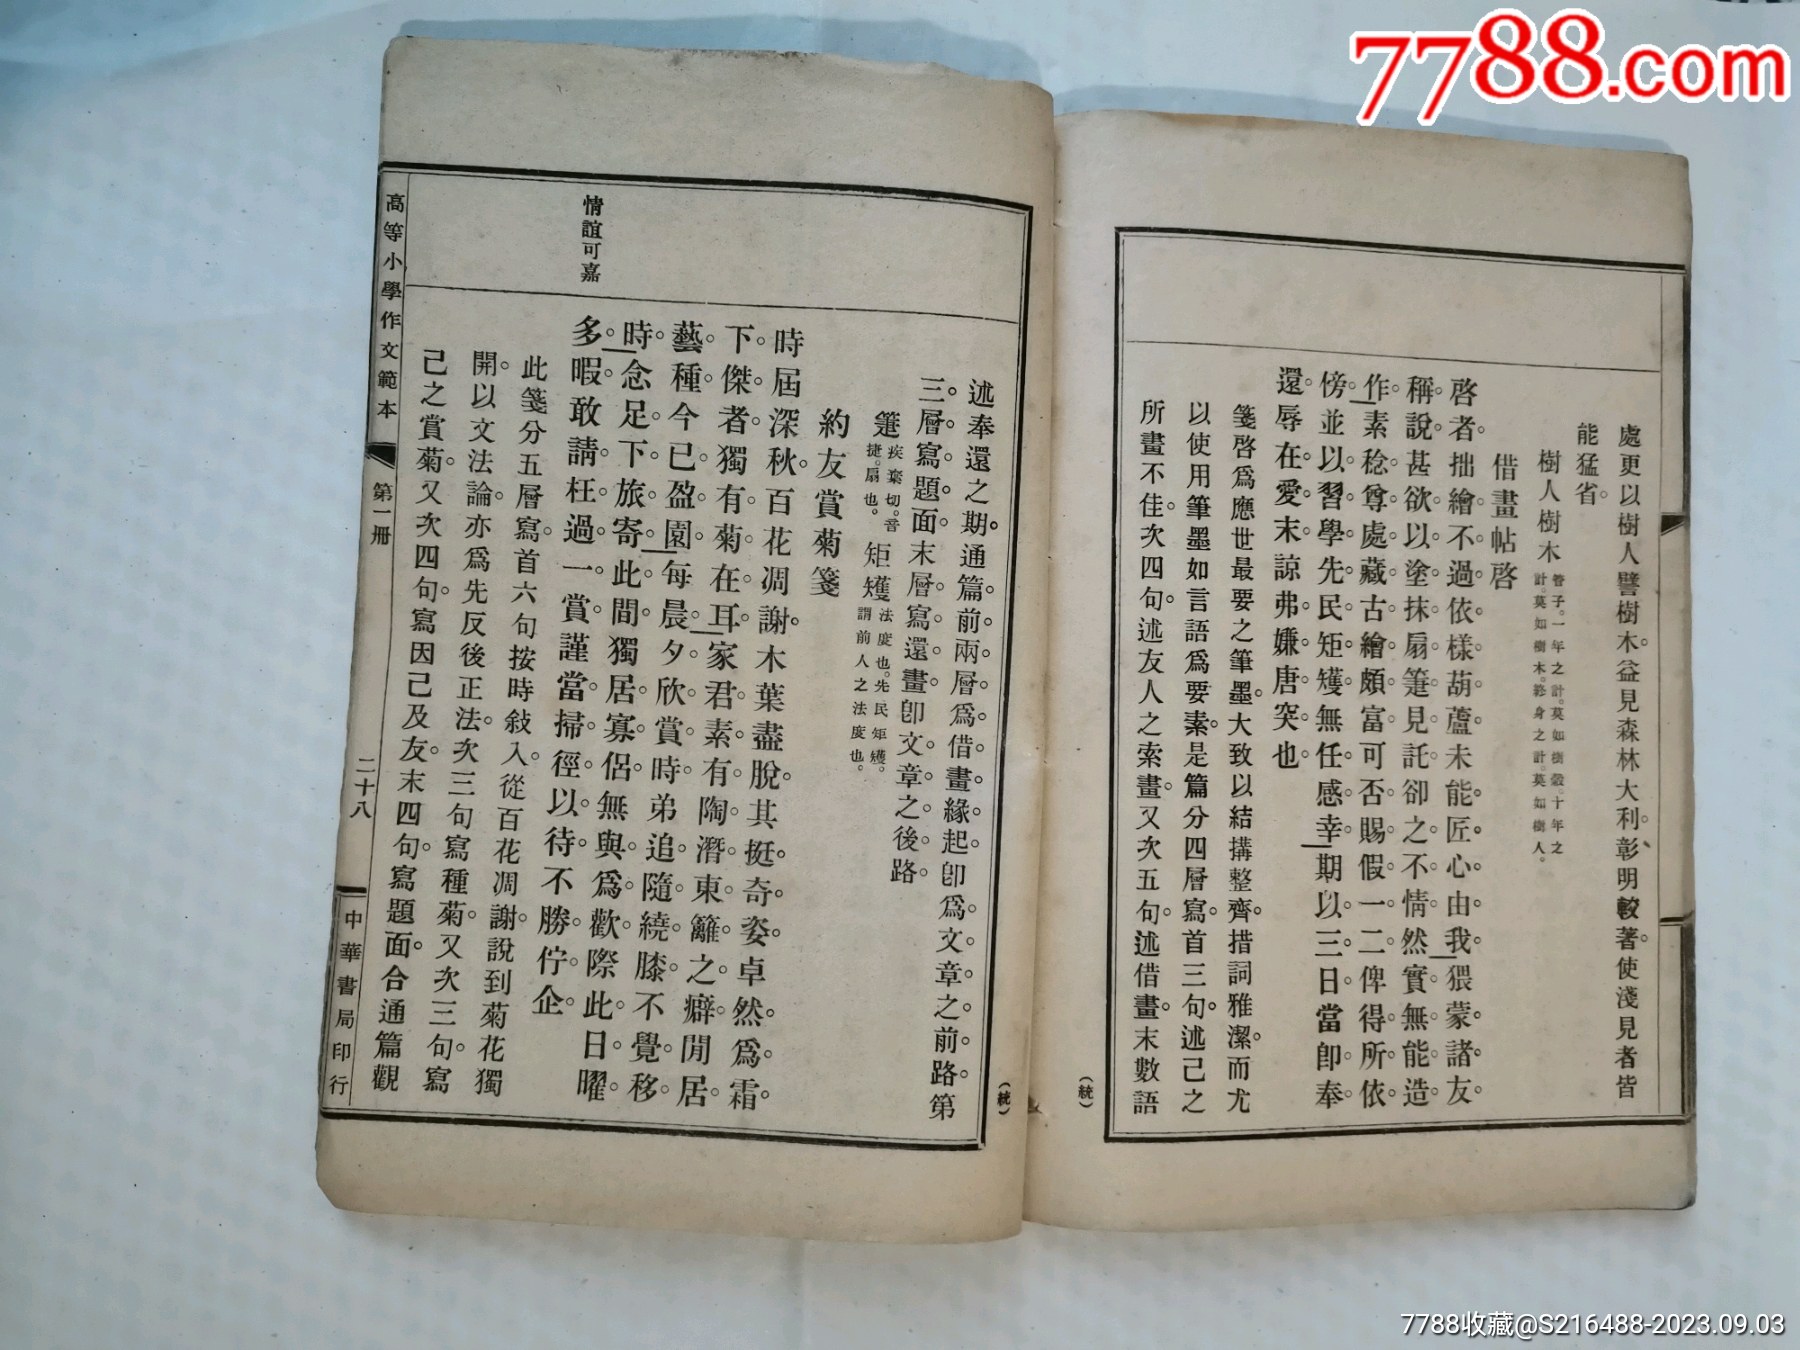 7788.com
處更以樹人譬樹木。益見森林大利。彰明較著。使淺見者皆
能猛省。
樹人樹木 管子。一年之計。莫如樹穀。十年之計。莫如樹木。終身之計。莫如樹人。
借畫帖啓
啓者。拙繪不過依樣葫蘆。未能匠心由我。猥蒙諸友
稱說。甚欲以塗抹扇箑見託。卻之不情。然實無能造
作。素稔尊處藏古繪頗富。可否賜假一二。俾得所依
傍。並以習學先民矩矱。無任感幸。期以三日。當卽奉
還。辱在愛末。諒弗嫌唐突也。
箋啓爲應世最要之筆墨。大致以結搆整齊。措詞雅潔。而尤
以使用筆墨如言語爲要素。是篇分四層寫。首三句。述己之
所畫不佳。次四句。述友人之索畫。又次五句。述借畫。末數語
(統)
述奉還之期。通篇前兩層。爲借畫緣起。卽爲文章之前路。第
三層。寫題面。末層。寫還畫。卽文章之後路。
箑 疾葉切。音捷。扇也。 矩矱 法度也。先民矩矱。謂前人之法度也。
約友賞菊箋
時屆深秋。百花凋謝。木葉盡脫。其挺奇姿。卓然爲霜
下傑者。獨有菊在耳。家君素有陶潛東籬之癖。閒居
藝種。今已盈園。每晨夕欣賞。時弟追隨繞膝。不覺移
時。念足下旅寄此間。獨居寡侶。無與爲歡。際此日曜
多暇。敢請枉過一賞。謹當掃徑以待。不勝佇企。
此箋分五層寫。首六句按時敍入。從百花凋謝。說到菊花獨
開。以文法論。亦爲先反後正法。次三句寫種菊。又次三句。寫
己之賞菊。又次四句。寫因己及友。末四句。寫題面。合通篇觀
情誼可嘉
(統)
高等小學作文範本
第一冊
二十八
中華書局印行
7788收藏@S216488-2023.09.03